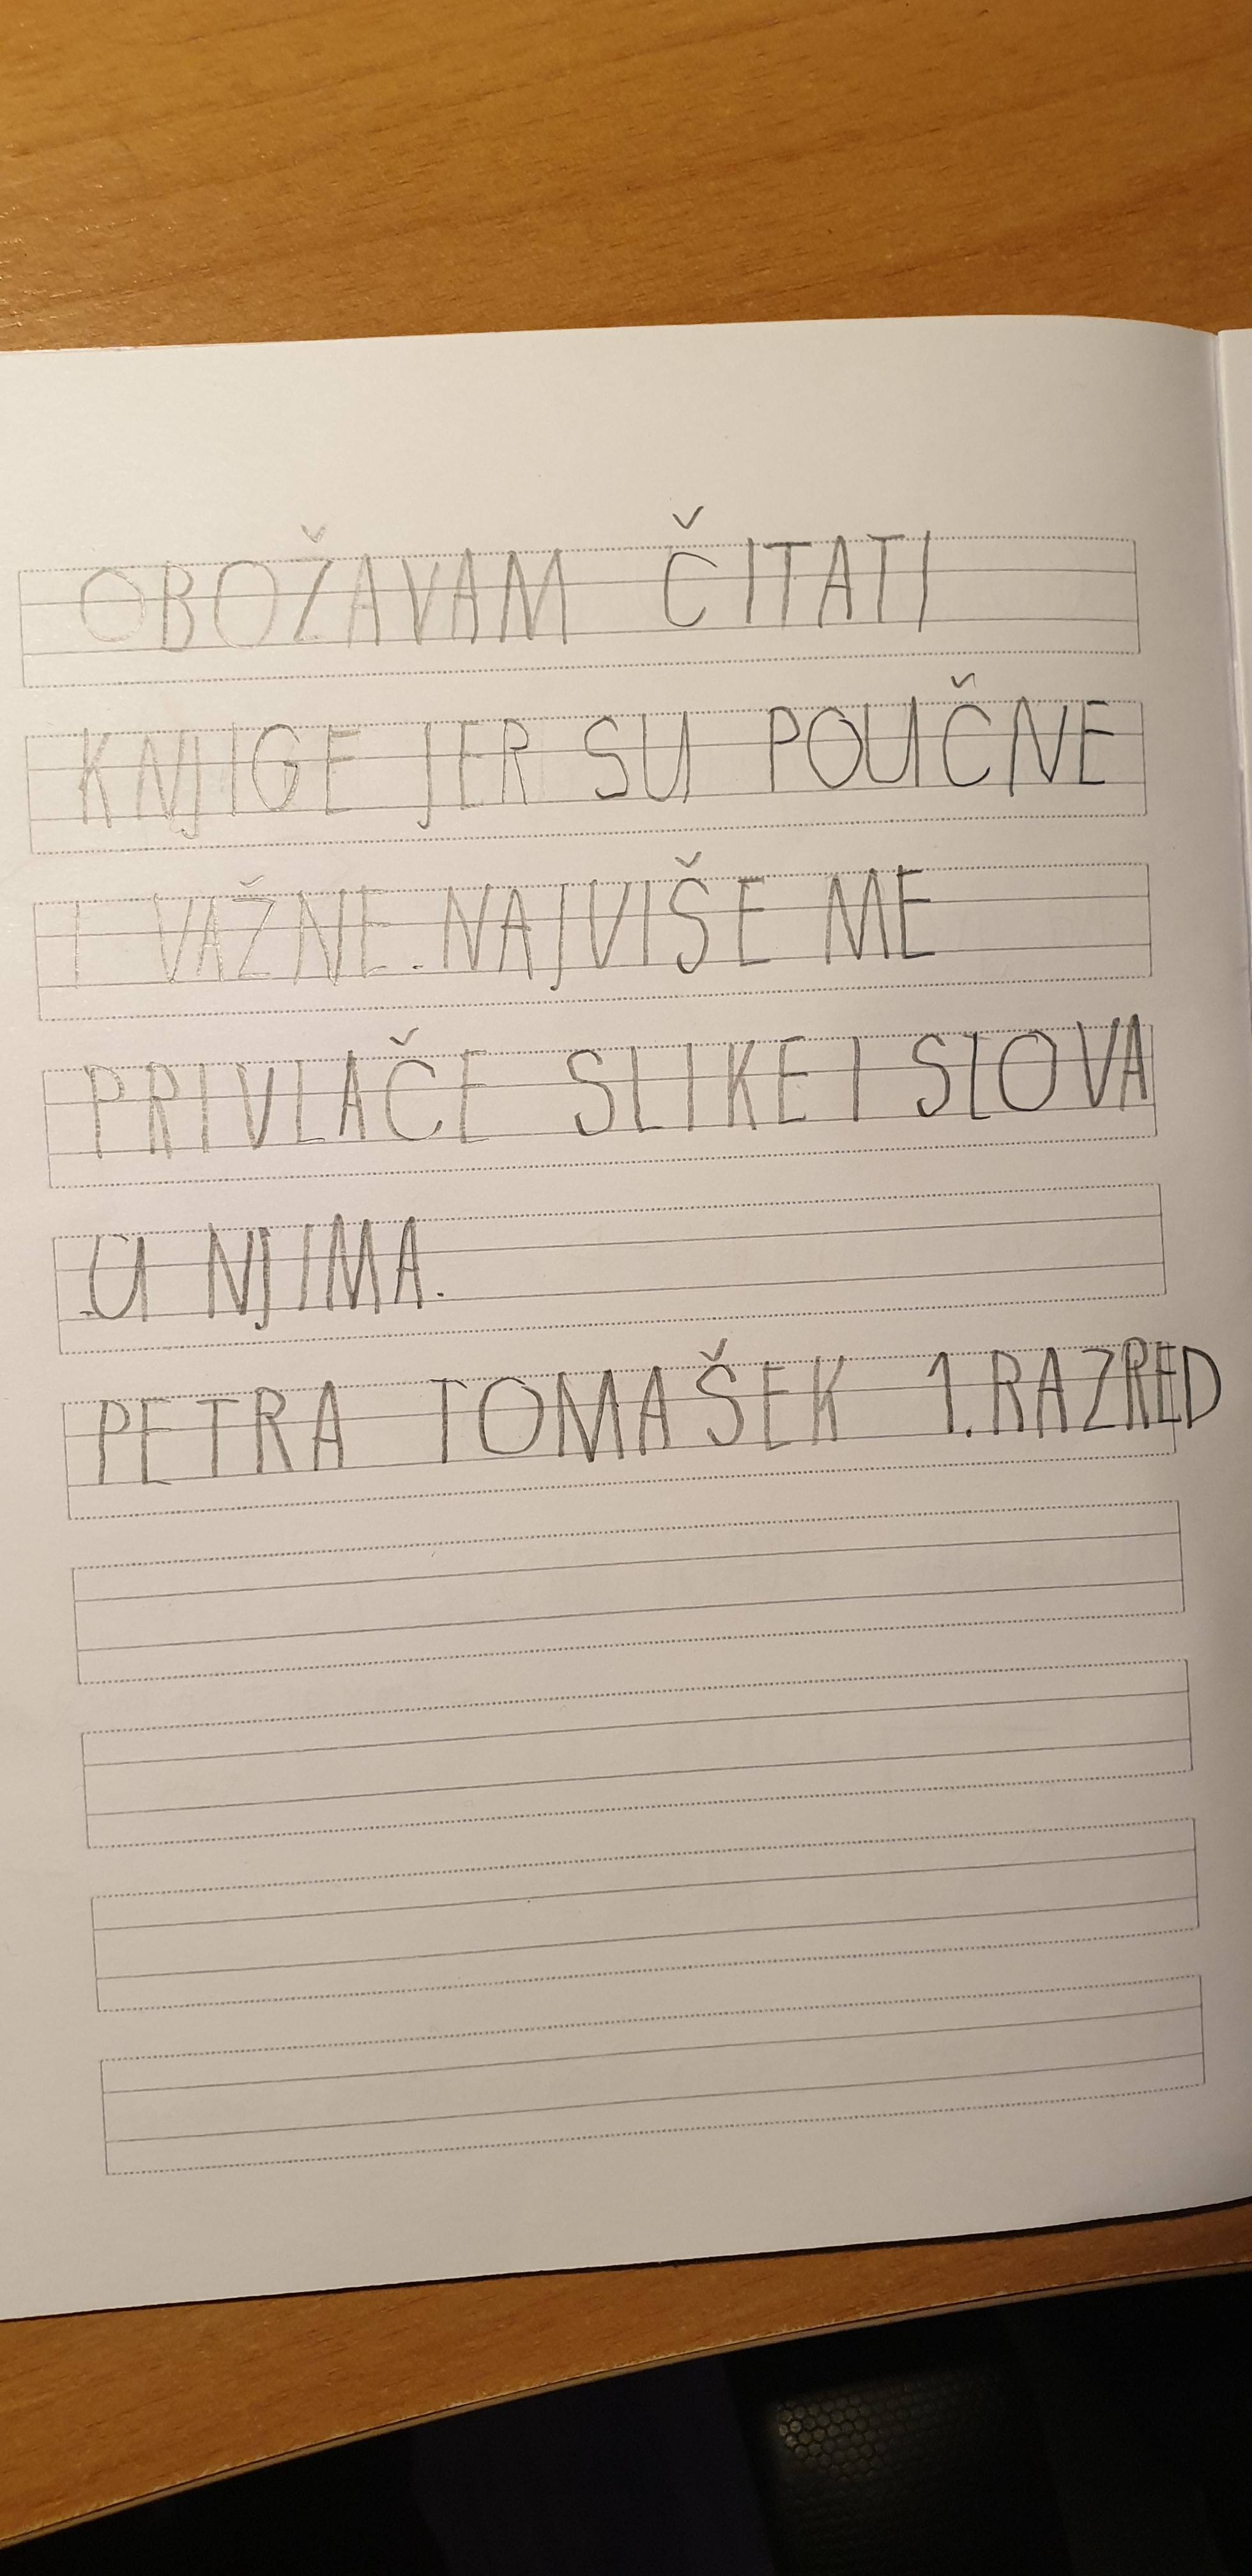 OBOŽAVAM ČITATI
KNJIGE JER SU POUČNE
I VAŽNE. NAJVIŠE ME
PRIVLAČE SLIKE I SLOVA
U NJIMA.
PETRA TOMAŠEK 1. RAZRED